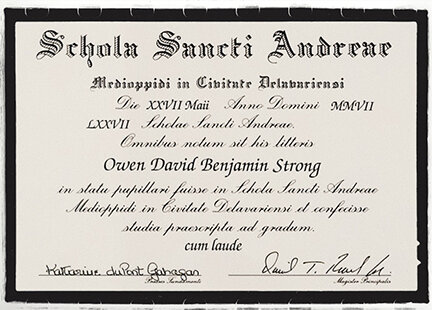 Schola Sancti Andreae
Medioppidi in Civitate Delavariensi
Die XXVII Maii Anno Domini MMVII
LXXVII Scholae Sancti Andreae.
Omnibus notum sit his litteris
Owen David Benjamin Strong
in statu pupillari fuisse in Schola Sancti Andreae
Medioppidi in Civitate Delavariensi et confecisse
studia praescripta ad gradum.
cum laude
Katharine duPont Gahagan
Magister Principalis